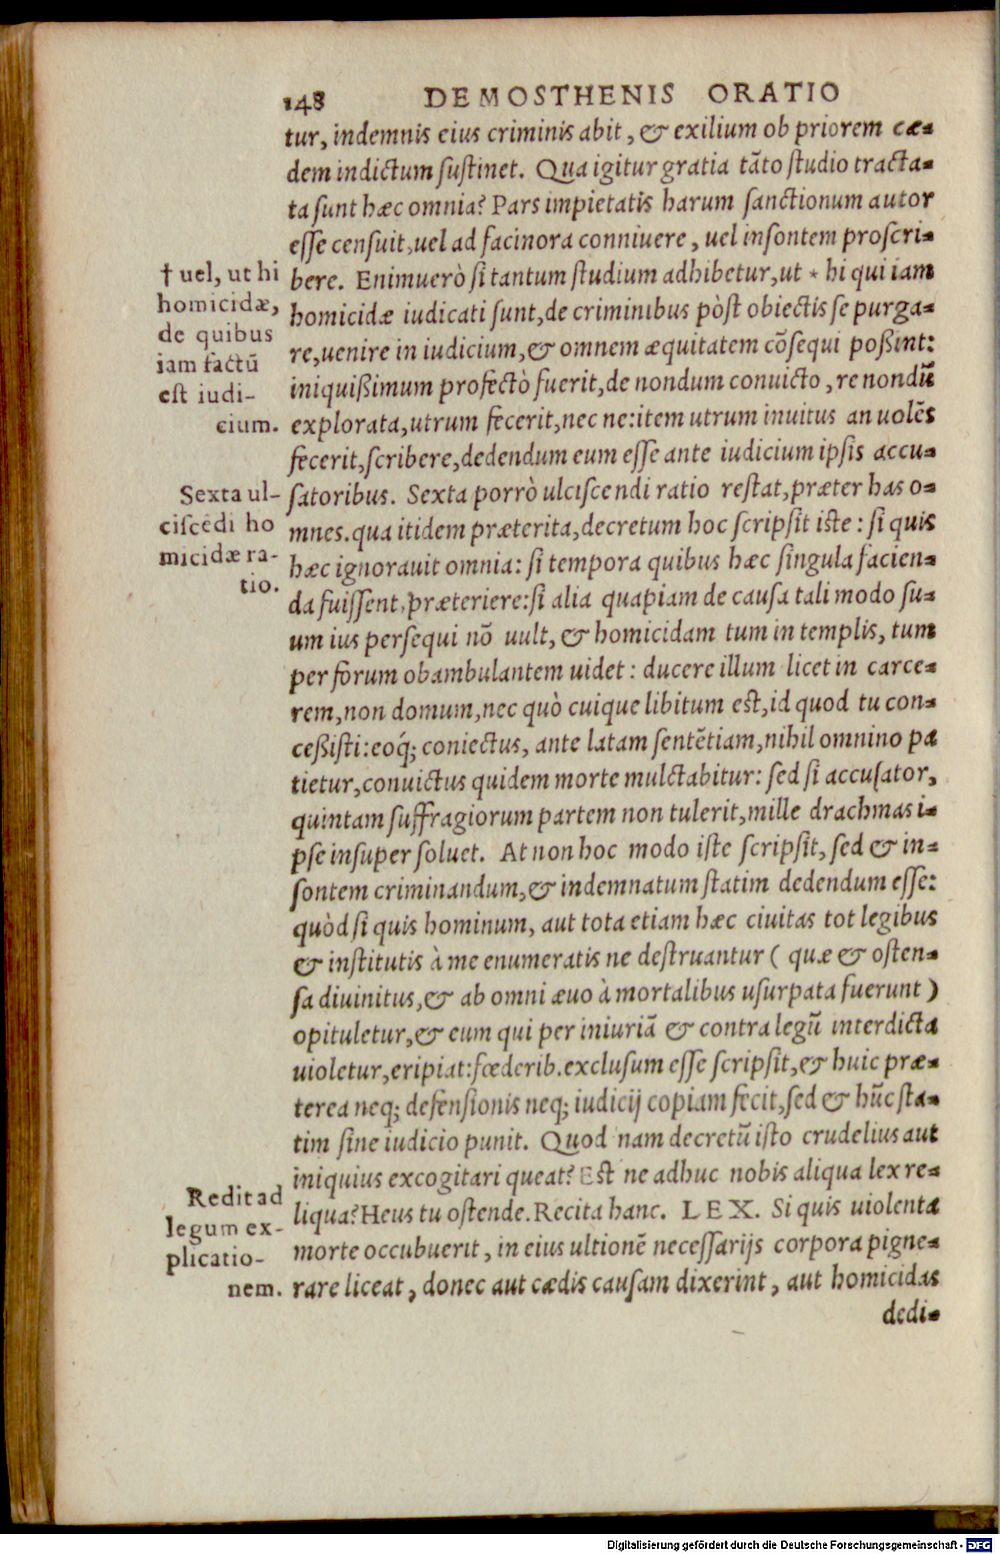 148 DEMOSTHENIS ORATIO
tur, indemnis eius criminis abit, & exilium ob priorem cæ-
dem indictum sustinet. Qua igitur gratia tãto studio tracta-
ta sunt hæc omnia? Pars impietatis harum sanctionum autor
esse censuit, uel ad facinora conniuere, uel insontem proscri-
bere. Enimuerò si tantum studium adhibetur, ut * hi qui iam
homicidæ iudicati sunt, de criminibus pòst obiectis se purga-
re, uenire in iudicium, & omnem æquitatem cõsequi poßint:
iniquißimum profectò fuerit, de nondum conuicto, re nondũ
explorata, utrum fecerit, nec ne: item utrum inuitus an uolẽs
fecerit, scribere, dedendum eum esse ante iudicium ipsis accu-
satoribus. Sexta porrò ulciscendi ratio restat, præter has o-
mnes. qua itidem præterita, decretum hoc scripsit iste: si quis
hæc ignorauit omnia: si tempora quibus hæc singula facien-
da fuissent, præteriere: si alia quapiam de causa tali modo su-
um ius persequi nõ uult, & homicidam tum in templis, tum
per forum obambulantem uidet: ducere illum licet in carce-
rem, non domum, nec quò cuique libitum est, id quod tu con-
ceßisti: eoq́; coniectus, ante latam sentẽtiam, nihil omnino pa
tietur, conuictus quidem morte mulctabitur: sed si accusator,
quintam suffragiorum partem non tulerit, mille drachmas i-
pse insuper soluet. At non hoc modo iste scripsit, sed & in-
sontem criminandum, & indemnatum statim dedendum esse:
quòd si quis hominum, aut tota etiam hæc ciuitas tot legibus
& institutis à me enumeratis ne destruantur ( quæ & osten-
sa diuinitus, & ab omni æuo à mortalibus usurpata fuerunt )
opituletur, & eum qui per iniuriã & contra legũ interdicta
uioletur, eripiat: fœderib. exclusum esse scripsit, & huic præ-
terea neq; defensionis neq; iudicij copiam fecit, sed & hũc sta-
tim sine iudicio punit. Quod nam decretũ isto crudelius aut
iniquius excogitari queat? Est ne adhuc nobis aliqua lex re-
liqua? Heus tu ostende. Recita hanc. LEX. Si quis uiolenta
morte occubuerit, in eius ultionẽ necessarijs corpora pigne-
rare liceat, donec aut cædis causam dixerint, aut homicidas
dedi-
† uel, ut hi
homicidæ,
de quibus
iam factũ
est iudi-
cium.
Sexta ul-
ciscẽdi ho
micidæ ra-
tio.
Redit ad
legum ex-
plicatio-
nem.
Digitalisierung gefördert durch die Deutsche Forschungsgemeinschaft - DFG